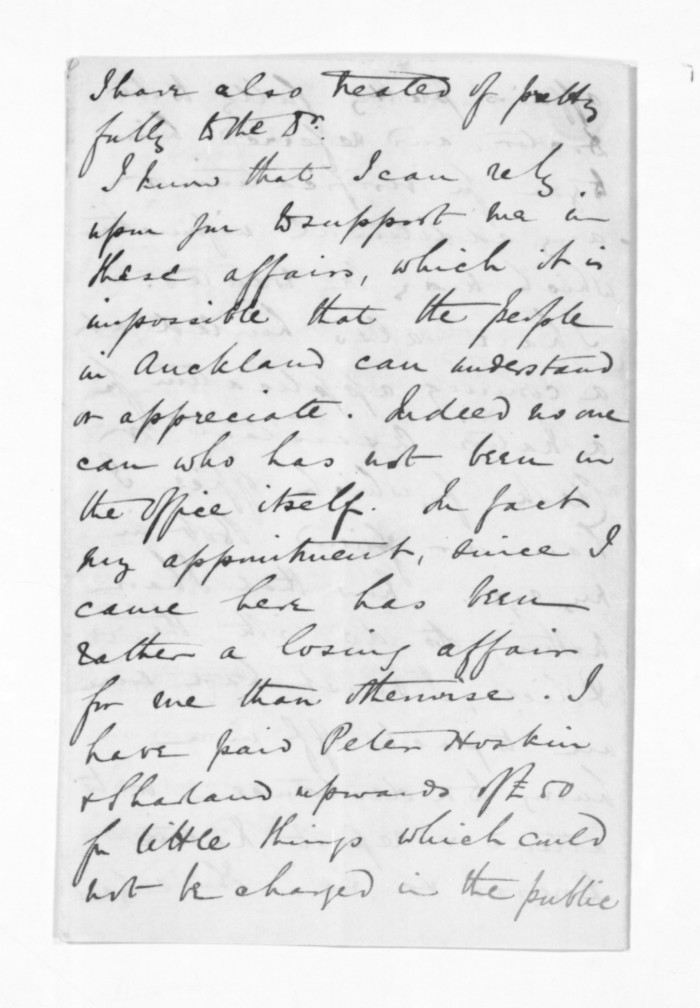 I have also treated of pretty
fully to the Dr.
I know that I can rely
upon you to support me in
these affairs, which it is
impossible that the people
in Auckland can understand
or appreciate. Indeed no one
can who has not been in
the office itself. In fact
my appointment, since I
came here has been
rather a losing affair
for me than otherwise. I
have paid Peter Hoskin
& Sharland upwards of £50
for little things which could
not be charged in the public